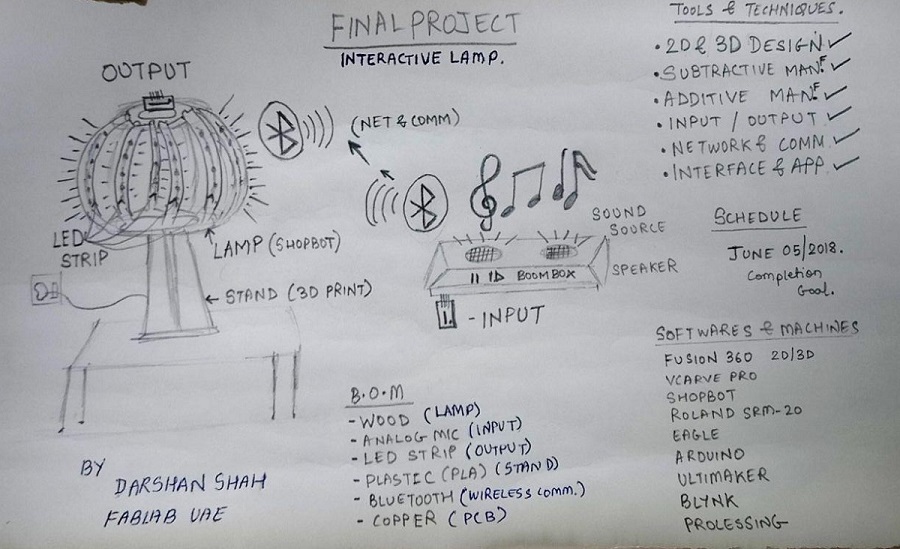 FINAL PROJECT
INTERACTIVE LAMP.
OUTPUT
(NET & COMM)
LED
STRIP
LAMP (SHOPBOT)
STAND (3D PRINT)
SOUND
SOURCE
BOOMBOX
SPEAKER
- INPUT
B.O.M
- WOOD (LAMP)
- ANALOG MIC (INPUT)
- LED STRIP (OUTPUT)
- PLASTIC (PLA) (STAND)
- BLUETOOTH (WIRELESS COMM.)
- COPPER (PCB)
BY
DARSHAN SHAH
FABLAB UAE
TOOLS & TECHNIQUES.
• 2D & 3D DESIGN ✓
• SUBTRACTIVE MANF. ✓
• ADDITIVE MANF. ✓
• INPUT / OUTPUT ✓
• NETWORK & COMM. ✓
• INTERFACE & APP. ✓
SCHEDULE
JUNE 05/2018.
Completion
Goal.
SOFTWARES & MACHINES
FUSION 360 2D/3D
VCARVE PRO
SHOPBOT
ROLAND SRM-20
EAGLE
ARDUINO
ULTIMAKER
BLYNK
PROLESSING